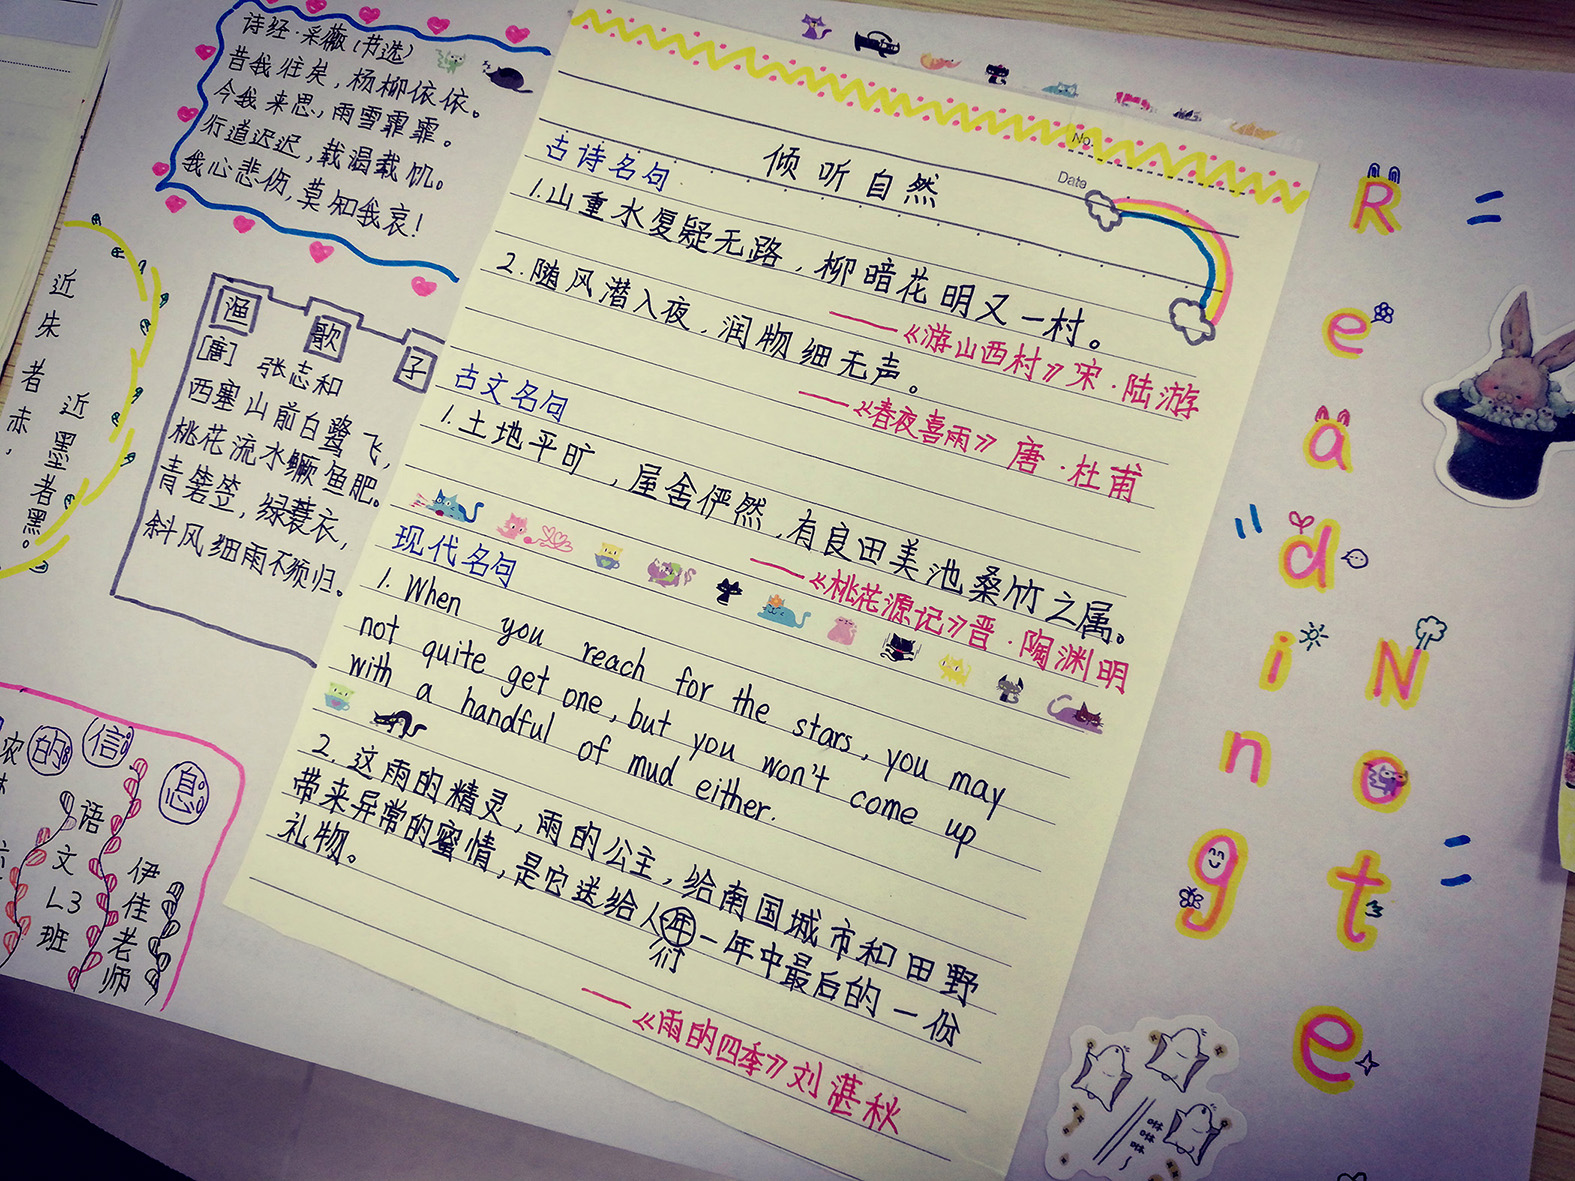 诗经·采薇(节选)
昔我往矣,杨柳依依。
今我来思,雨雪霏霏。
行道迟迟,载渴载饥。
我心悲伤,莫知我哀!
近朱者赤,
近墨者黑。
渔歌子
[唐] 张志和
西塞山前白鹭飞,
桃花流水鳜鱼肥。
青箬笠,绿蓑衣,
斜风细雨不须归。
的信息
语文L3班
伊佳老师
No.
Date
倾听自然
古诗名句
1.山重水复疑无路,柳暗花明又一村。
——《游山西村》宋·陆游
2.随风潜入夜,润物细无声。
——《春夜喜雨》唐·杜甫
古文名句
1.土地平旷,屋舍俨然,有良田美池桑竹之属。
——《桃花源记》晋·陶渊明
现代名句
1. When you reach for the stars, you may
not quite get one, but you won't come up
with a handful of mud either.
2.这雨的精灵,雨的公主,给南国城市和田野
带来异常的蜜情,是它送给人们一年中最后的一份
礼物。
——《雨的四季》刘湛秋
Reading
Note
咻咻咻~